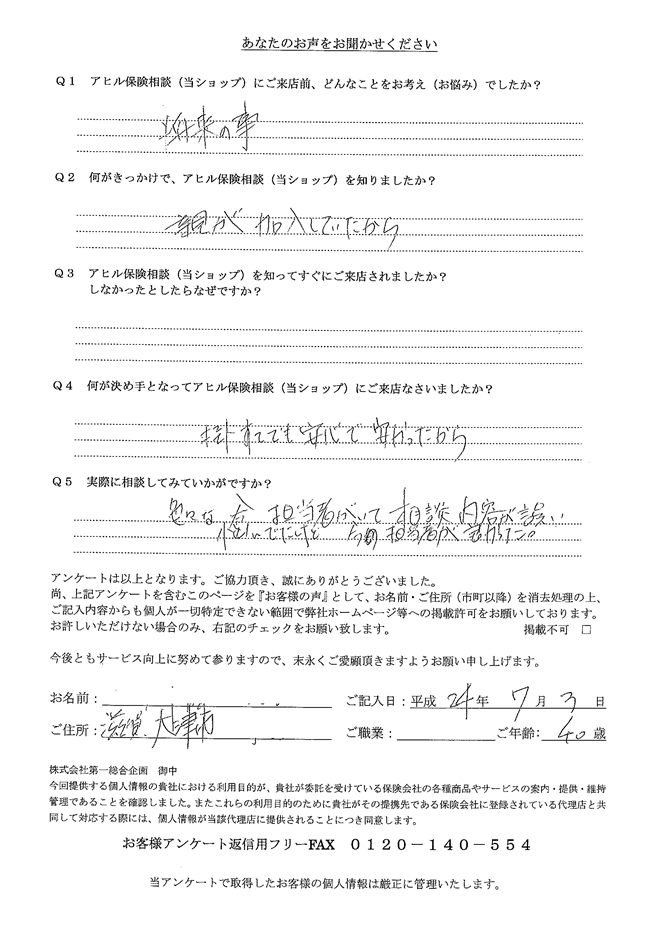 あなたのお声をお聞かせください
Q1 アヒル保険相談（当ショップ）にご来店前、どんなことをお考え（お悩み）でしたか？
将来の事
Q2 何がきっかけで、アヒル保険相談（当ショップ）を知りましたか？
親が加入していたから
Q3 アヒル保険相談（当ショップ）を知ってすぐにご来店されましたか？
しなかったとしたらなぜですか？
Q4 何が決め手となってアヒル保険相談（当ショップ）にご来店なさいましたか？
掛すてでも安心で安かったから
Q5 実際に相談してみていかがですか？
色々な 担当者がいて 相談 内容が
担当者が
アンケートは以上となります。ご協力頂き、誠にありがとうございました。
尚、上記アンケートを含むこのページを『お客様の声』として、お名前・ご住所（市町以降）を消去処理の上、
ご記入内容からも個人が一切特定できない範囲で弊社ホームページ等への掲載許可をお願いしております。
お許しいただけない場合のみ、右記のチェックをお願い致します。 掲載不可 □
今後ともサービス向上に努めて参りますので、末永くご愛顧頂きますようお願い申し上げます。
お名前： ご記入日：平成 24年 7月 3日
ご住所：滋賀 大津市 ご職業： ご年齢：40歳
株式会社第一総合企画 御中
今回提供する個人情報の貴社における利用目的が、貴社が委託を受けている保険会社の各種商品やサービスの案内・提供・維持
管理であることを確認しました。またこれらの利用目的のために貴社がその提携先である保険会社に登録されている代理店と共
同して対応する際には、個人情報が当該代理店に提供されることにつき同意します。
お客様アンケート返信用フリーFAX 0120－140－554
当アンケートで取得したお客様の個人情報は厳正に管理いたします。